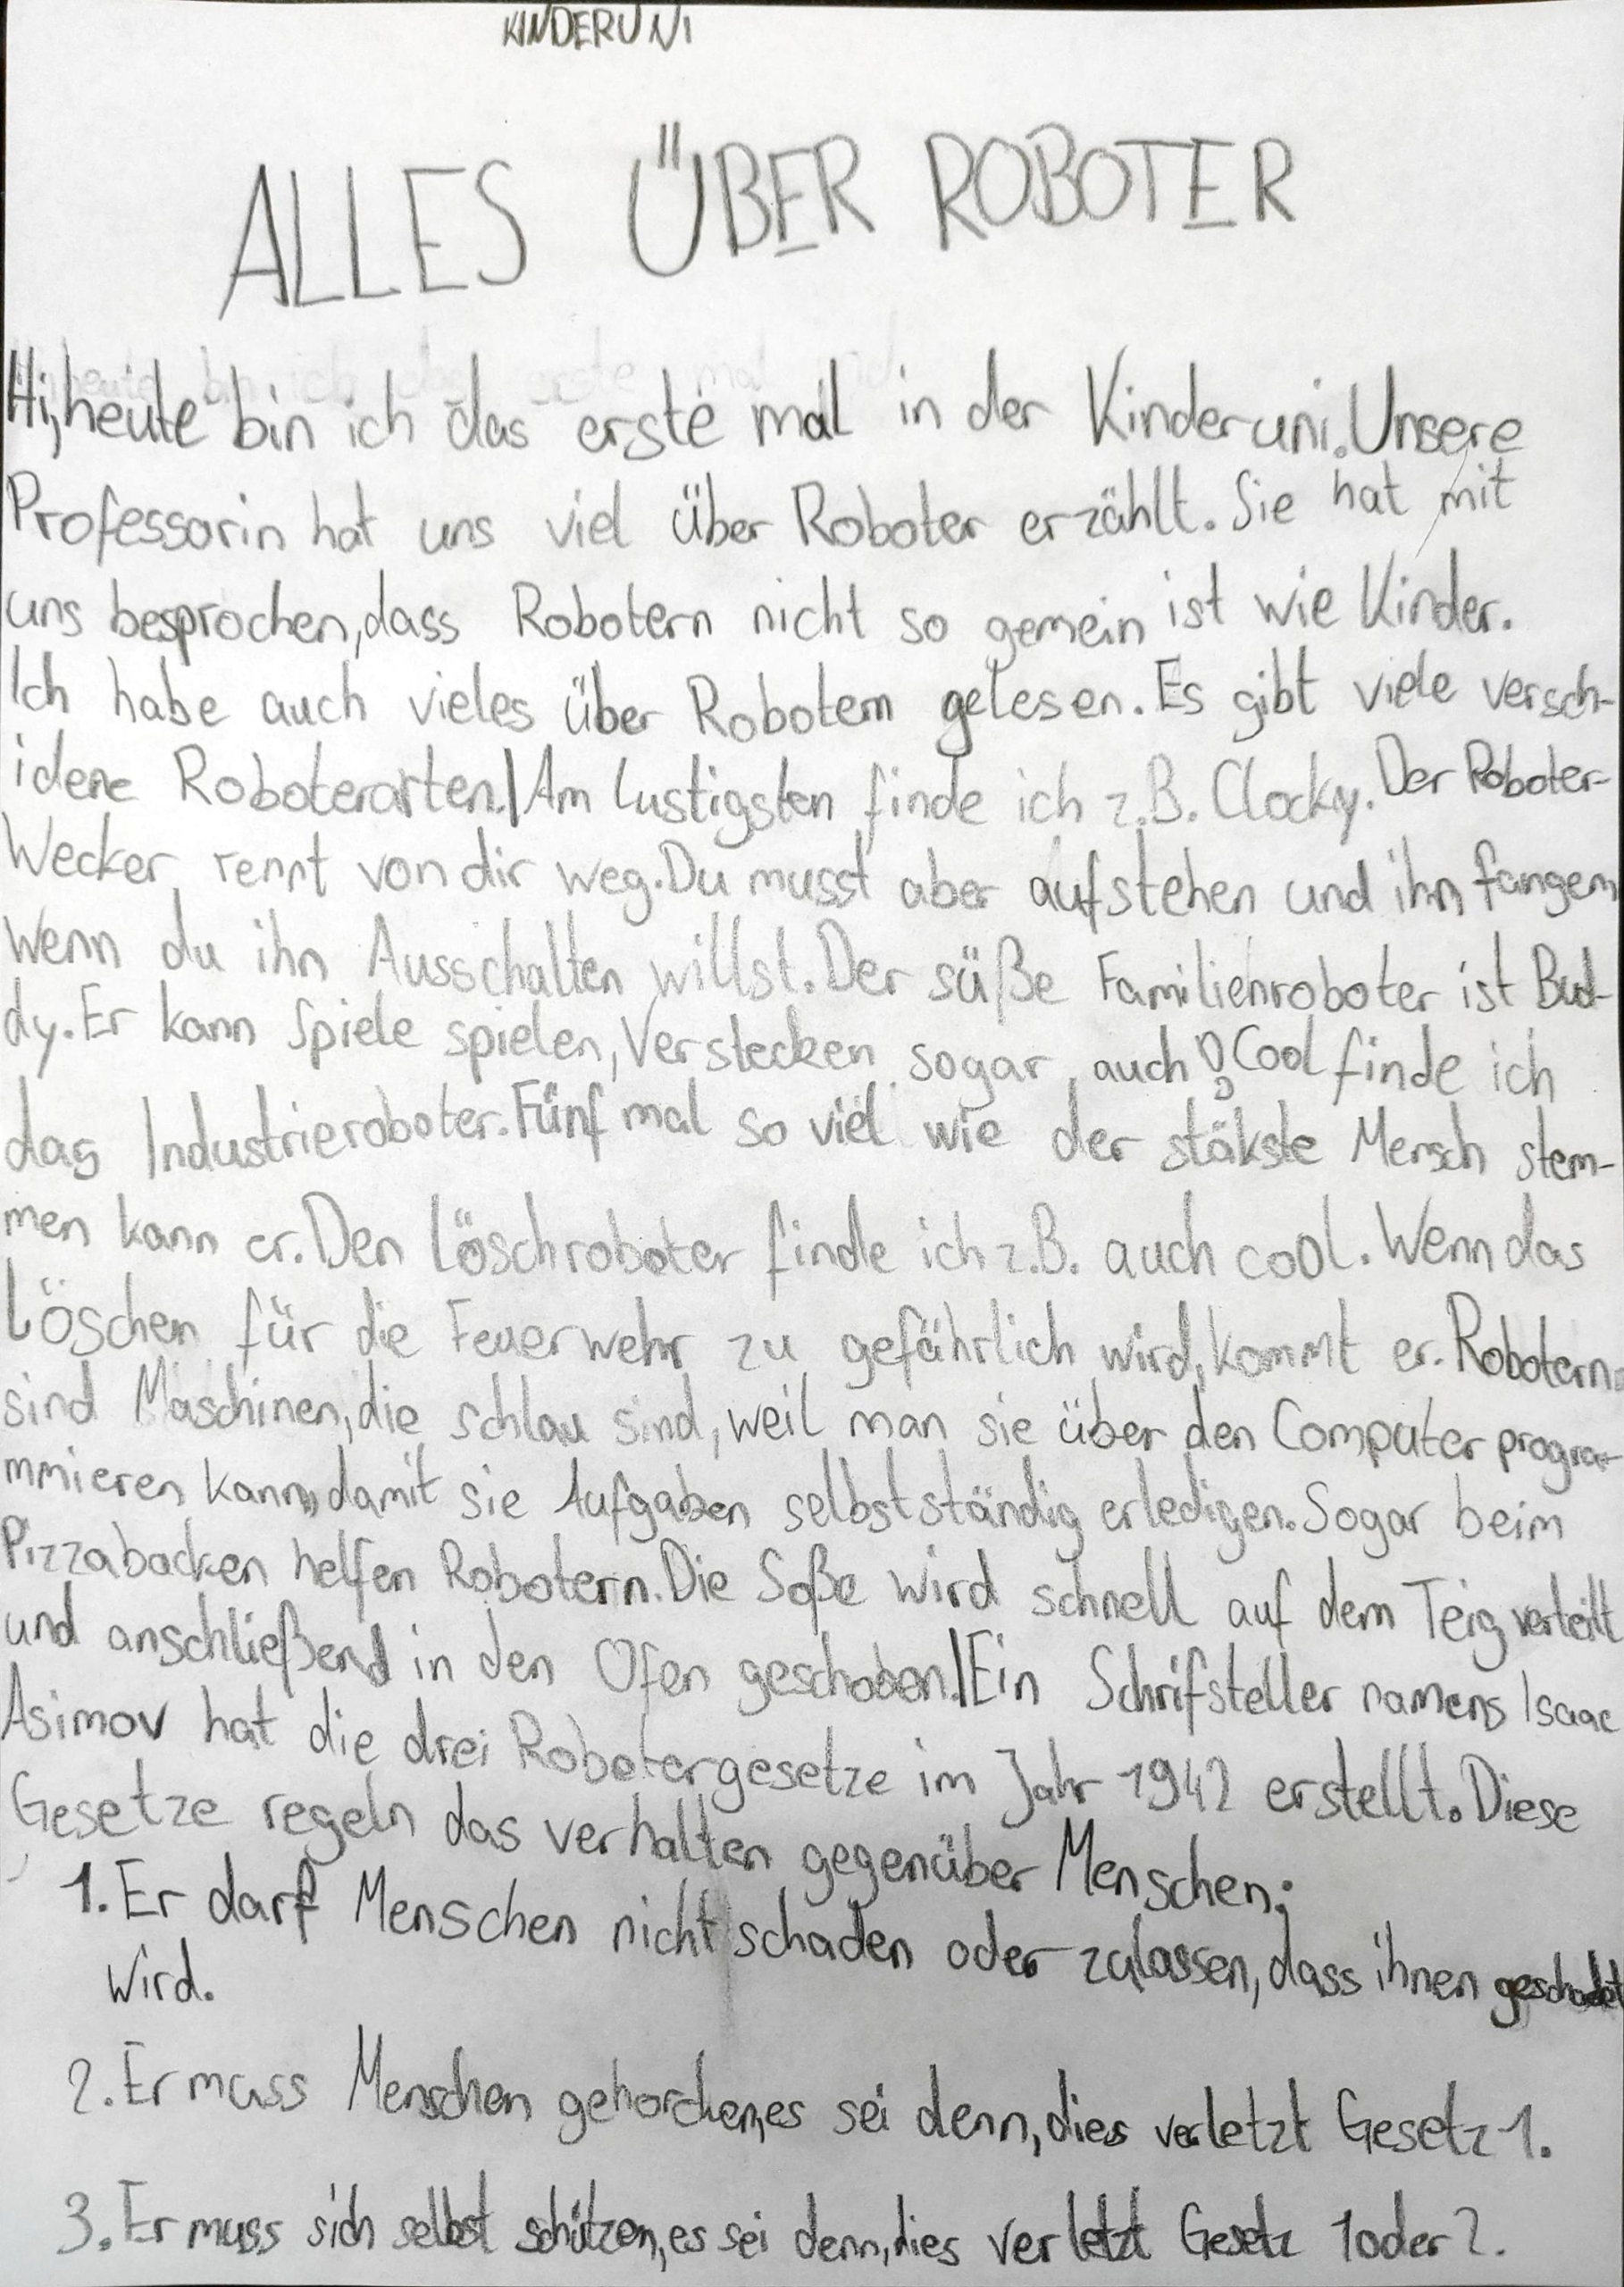 KINDERUNI
ALLES ÜBER ROBOTER
Hi, heute bin ich das erste mal in der Kinderuni. Unsere
Professorin hat uns viel über Roboter erzählt. Sie hat mit
uns besprochen, dass Robotern nicht so gemein ist wie Kinder.
Ich habe auch vieles über Robotern gelesen. Es gibt viele versch-
idene Roboterarten.| Am lustigsten finde ich z.B. Clocky. Der Roboter-
Wecker rennt von dir weg. Du musst aber aufstehen und ihn fangen,
Wenn du ihn Ausschalten willst. Der süße Familienroboter ist Bud-
dy. Er kann Spiele spielen, Verstecken sogar auch! Cool finde ich
das Industrieroboter. Fünf mal so viel wie der stäkste Mensch stem-
men kann er. Den Löschroboter finde ich z.B. auch cool. Wenn das
Löschen für die Feuerwehr zu gefährlich wird, kommt er. Robotern
sind Maschinen, die schlau sind, weil man sie über den Computer progra-
mmieren kann, damit sie Aufgaben selbstständig erledigen. Sogar beim
Pizzabacken helfen Robotern. Die Soße wird schnell auf dem Teig verteilt
und anschließend in den Ofen geschoben.| Ein Schrifsteller namens Isaac
Asimov hat die drei Robotergesetze im Jahr 1942 erstellt. Diese
Gesetze regeln das verhalten gegenüber Menschen:
1. Er darf Menschen nicht schaden oder zulassen, dass ihnen geschadet
wird.
2. Er muss Menschen gehorchen, es sei denn, dies verletzt Gesetz 1.
3. Er muss sich selbst schützen, es sei denn, dies verletzt Gesetz 1 oder 2.